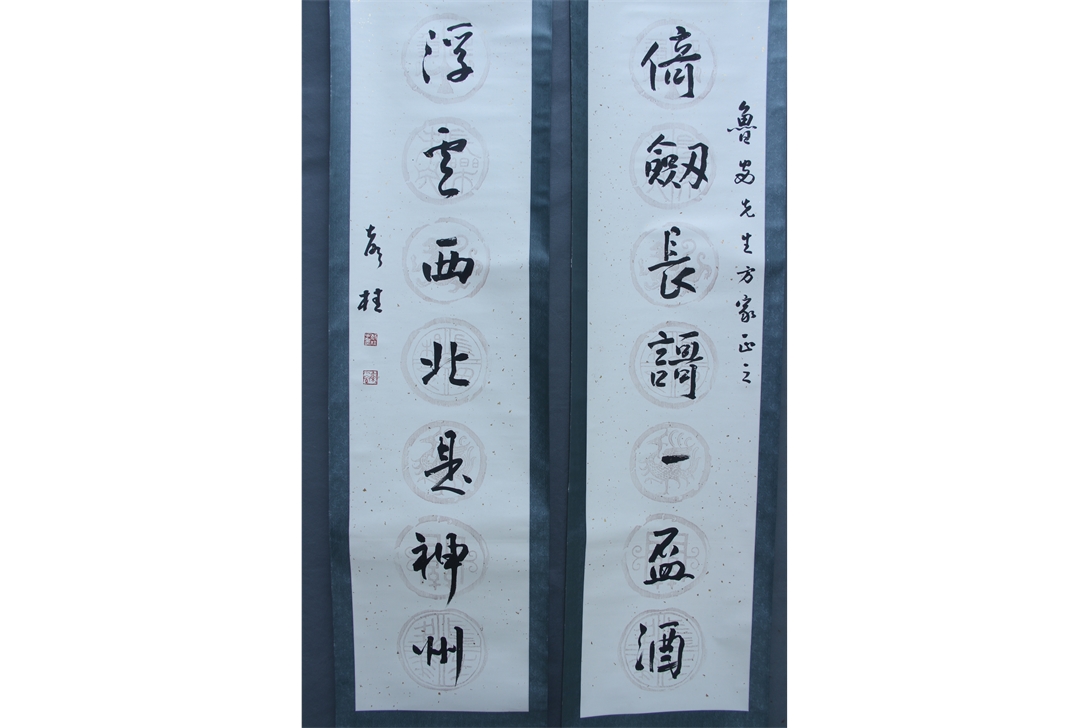 魯安先生方家正之
倚劔長謌一盃酒
浮雲西北是神州
彥桂